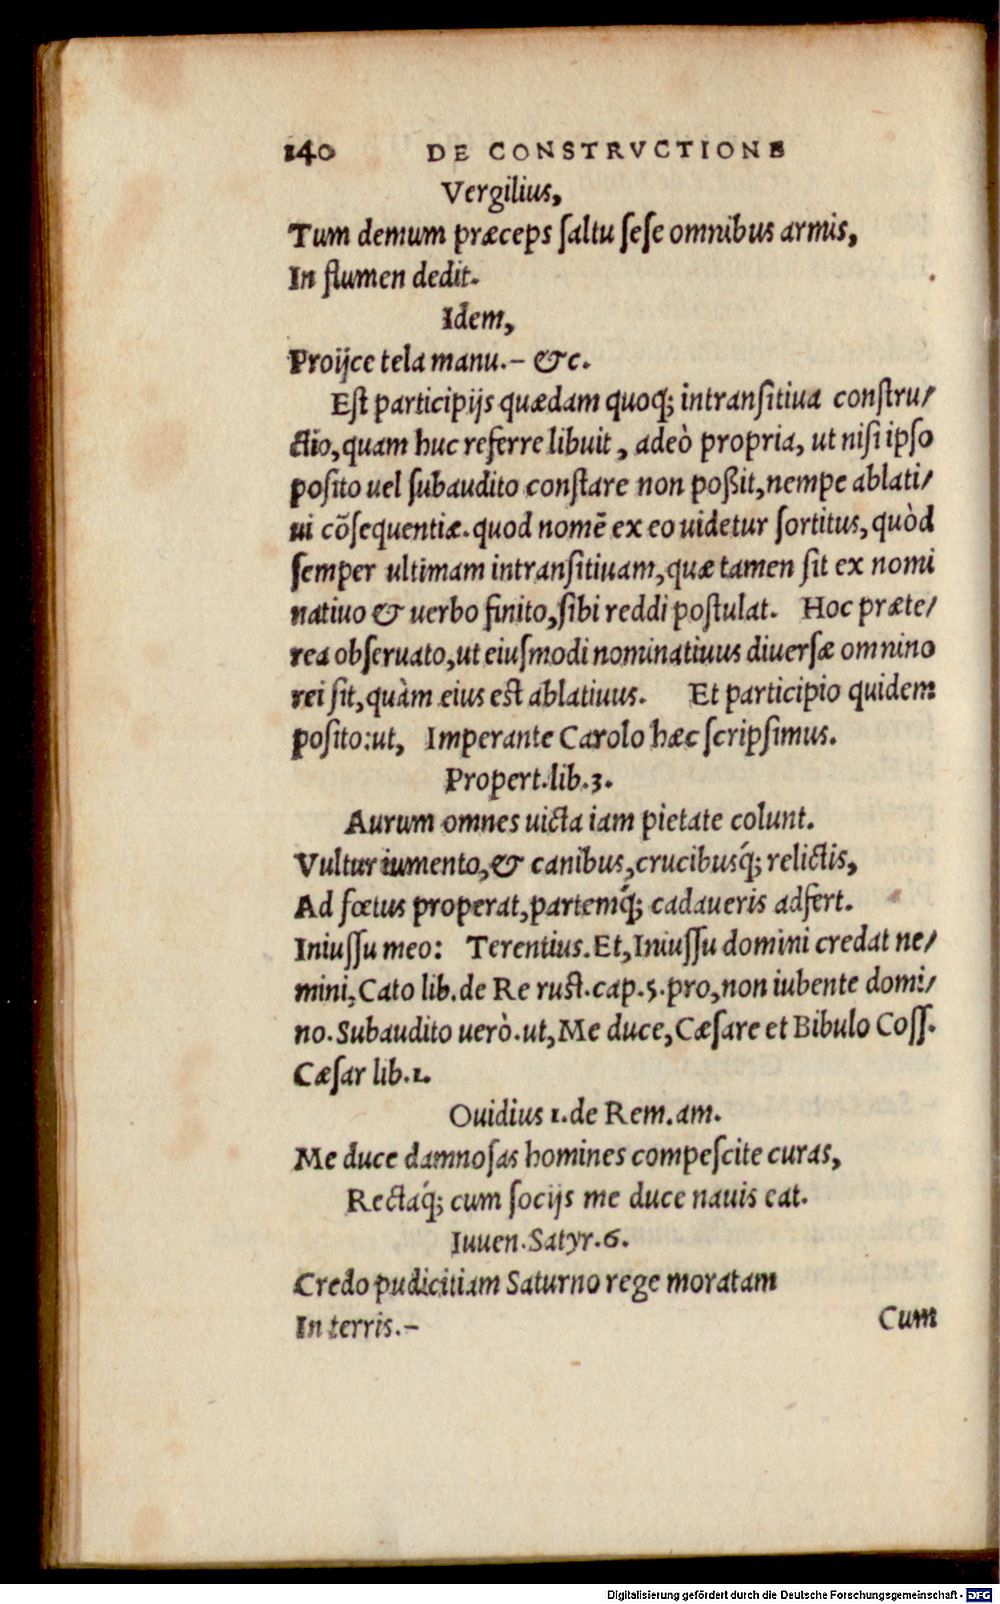 140 DE CONSTRVCTIONE
Vergilius,
Tum demum præceps ſaltu ſeſe omnibus armis,
In flumen dedit.
Idem,
Proijce tela manu.– &c.
Eſt participijs quædam quoq; intranſitiua conſtru/
ctio, quam huc referre libuit, adeò propria, ut niſi ipſo
poſito uel ſubaudito conſtare non poßit, nempe ablati/
ui cõſequentiæ. quod nomẽ ex eo uidetur ſortitus, quòd
ſemper ultimam intranſitiuam, quæ tamen ſit ex nomi
natiuo & uerbo finito, ſibi reddi poſtulat. Hoc præte/
rea obſeruato, ut eiuſmodi nominatiuus diuerſæ omnino
rei ſit, quàm eius est ablatiuus. Et participio quidem
poſito: ut, Imperante Carolo hæc ſcripſimus.
Propert. lib. 3.
Aurum omnes uicta iam pietate colunt.
Vultur iumento, & canibus, crucibusq́; relictis,
Ad fœtus properat, partemq́; cadaueris adfert.
Iniuſſu meo: Terentius. Et, Iniuſſu domini credat ne/
mini, Cato lib. de Re rust. cap. 5. pro, non iubente domi/
no. Subaudito uerò. ut, Me duce, Cæſare et Bibulo Coſſ.
Cæſar lib. 1.
Ouidius 1. de Rem. am.
Me duce damnoſas homines compeſcite curas,
Rectaq́; cum ſocijs me duce nauis eat.
Iuuen. Satyr. 6.
Credo pudicitiam Saturno rege moratam
In terris.–
Cum
Digitalisierung gefördert durch die Deutsche Forschungsgemeinschaft - DFG